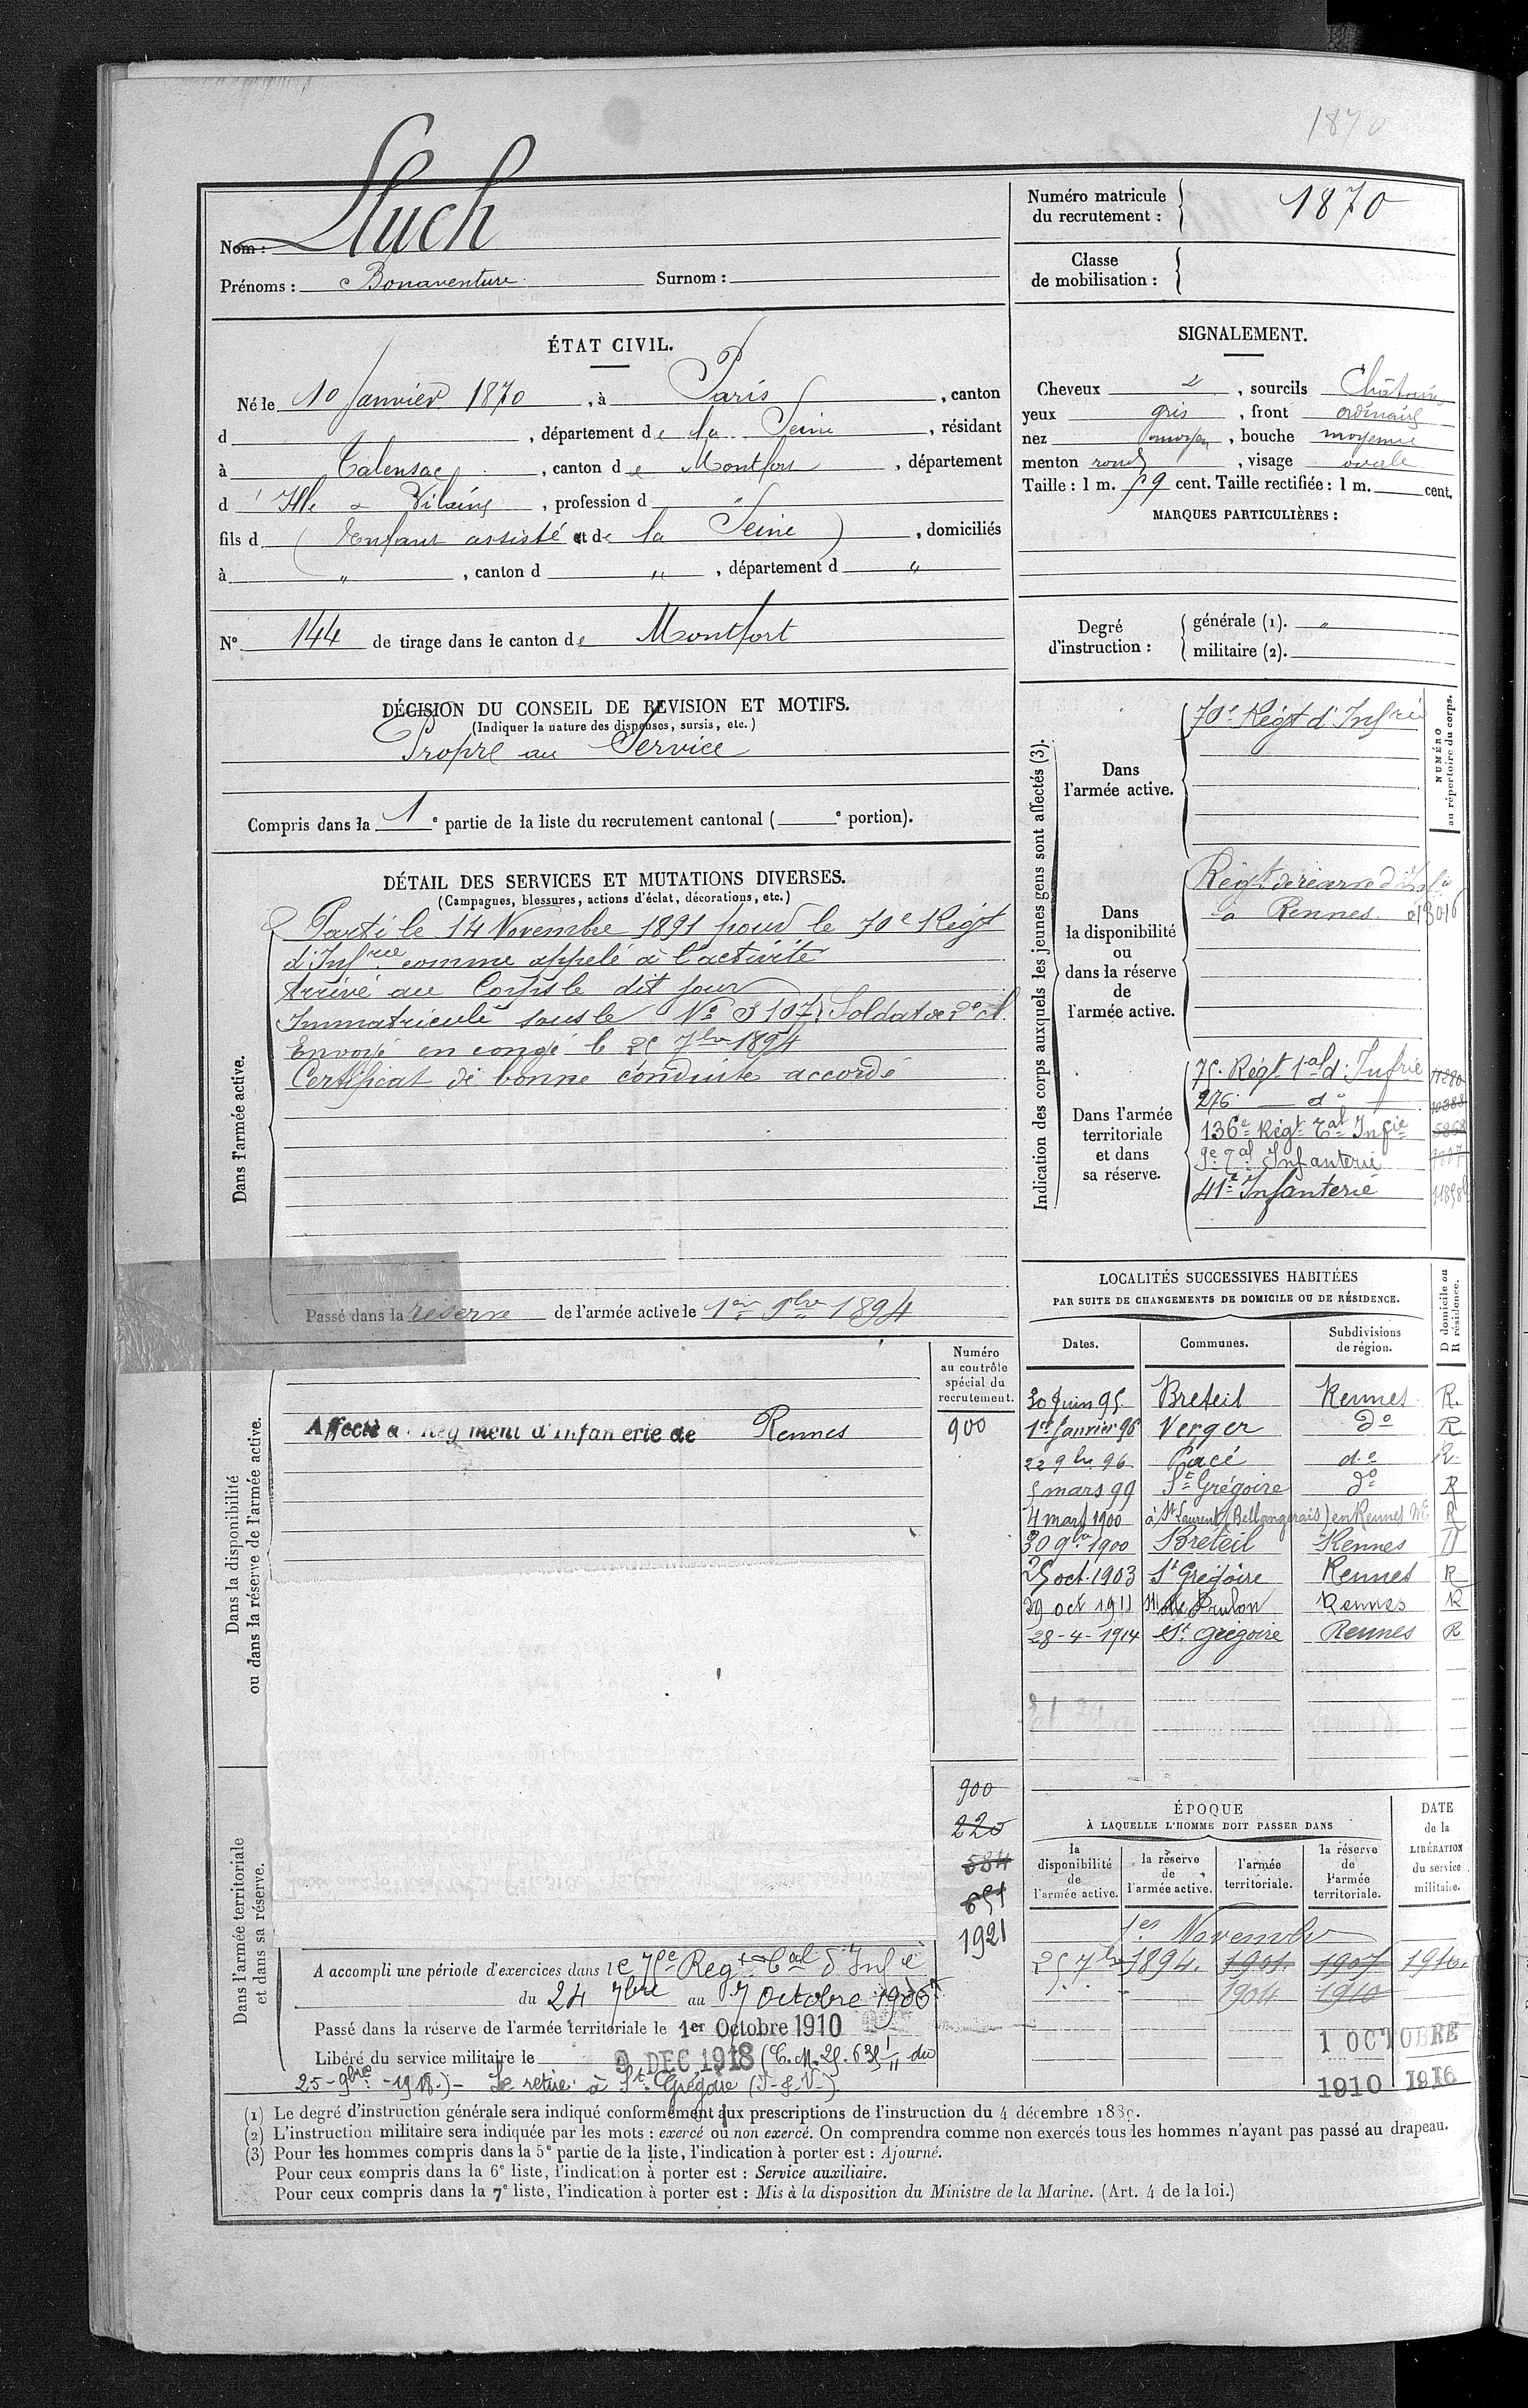 1870
Nom : Lluch
Prénoms : Bonaventure Surnom :
Numéro matricule du recrutement : 1870
Classe de mobilisation :
ÉTAT CIVIL.
Né le 10 Janvier 1870, à Paris, canton
d , département de la Seine, résidant
à Talensac, canton de Montfort, département
d'Ille & Vilaine, profession d "
fils d (Enfant assisté et de la Seine), domiciliés
à " , canton d " , département d "
N° 144 de tirage dans le canton de Montfort
SIGNALEMENT.
Cheveux & , sourcils Châtains
yeux gris , front ordinaire
nez moyen , bouche moyenne
menton rond , visage ovale
Taille : 1 m. 59 cent. Taille rectifiée : 1 m. cent.
MARQUES PARTICULIÈRES :
Degré d'instruction : générale (1). "
militaire (2).
DÉCISION DU CONSEIL DE REVISION ET MOTIFS.
(Indiquer la nature des dispenses, sursis, etc.)
Propre au Service
Compris dans la 1e partie de la liste du recrutement cantonal ( e portion).
DÉTAIL DES SERVICES ET MUTATIONS DIVERSES.
(Campagnes, blessures, actions d'éclat, décorations, etc.)
Dans l'armée active.
Parti le 14 Novembre 1891 pour le 70e Régt
d'Infrie comme appelé à l'activité
Arrivé au Corps le dit jour
Immatriculé sous le No 3107 Soldat de 2e cl.
Envoyé en congé le 25 7bre 1894
Certificat de bonne conduite accordé
Passé dans la réserve de l'armée active le 1er 9bre 1894
Indication des corps auxquels les jeunes gens sont affectés (3).
NUMÉRO au répertoire du corps.
Dans l'armée active.
70e Régt d'Infrie
Dans la disponibilité ou dans la réserve de l'armée active.
Régt de réserve d'Infie
à Rennes
Dans l'armée territoriale et dans sa réserve.
75e Régt Tal d'Infrie 11280
276 do 10388
136e Régt Tal Infie 5868
9e Tal Infanterie
41e Infanterie
LOCALITÉS SUCCESSIVES HABITÉES
PAR SUITE DE CHANGEMENTS DE DOMICILE OU DE RÉSIDENCE.
Dates. Communes. Subdivisions de région. D domicile ou R résidence.
30 Juin 95 Breteil Rennes R.
1er Janvier 96 Verger do R
22 9bre 96 Pacé do R
5 mars 99 St Grégoire do R
4 mars 1900 à St Laurent (Bellangerais) en Rennes NE R
30 9bre 1900 Breteil Rennes
25 oct. 1903 St Grégoire Rennes R
29 oct 1911 Rennes R
28-4-1914 St Grégoire Rennes R
Dans la disponibilité ou dans la réserve de l'armée active.
Numéro au contrôle spécial du recrutement.
Affecté a Régiment d'Infanterie de Rennes 900
Dans l'armée territoriale et dans sa réserve.
900
220
584
651
1921
A accompli une période d'exercices dans le 75e Régt Tal d'Infie
du 24 7bre au 7 Octobre 1906
Passé dans la réserve de l'armée territoriale le 1er Octobre 1910
Libéré du service militaire le 9 DEC 1918 (C.M. du
25-9bre-1918.) - Se retire à St Grégoire (I-&-V-).
ÉPOQUE
À LAQUELLE L'HOMME DOIT PASSER DANS
DATE de la LIBÉRATION du service militaire.
la disponibilité de l'armée active. la réserve de l'armée active. l'armée territoriale. la réserve de l'armée territoriale.
1er Novembre
25 7bre 1894. 1901 1907 1916.
1904 1910
1 OCTOBRE
1910 1916
(1) Le degré d'instruction générale sera indiqué conformément aux prescriptions de l'instruction du 4 décembre 1889.
(2) L'instruction militaire sera indiquée par les mots : exercé ou non exercé. On comprendra comme non exercés tous les hommes n'ayant pas passé au drapeau.
(3) Pour les hommes compris dans la 5e partie de la liste, l'indication à porter est : Ajourné.
Pour ceux compris dans la 6e liste, l'indication à porter est : Service auxiliaire.
Pour ceux compris dans la 7e liste, l'indication à porter est : Mis à la disposition du Ministre de la Marine. (Art. 4 de la loi.)